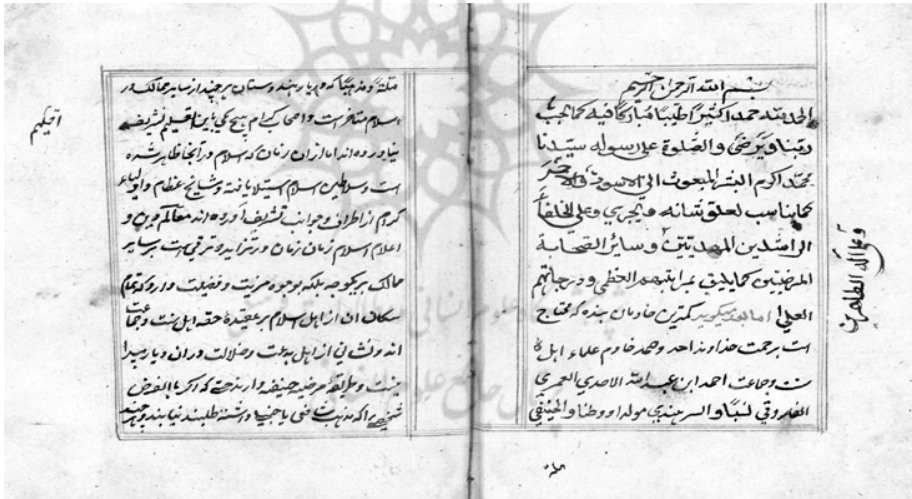 بسم الله الرحمن الرحیم
الحمد لله حمدا کثیرا طیبا مبارکا فیه کما یحب
ربنا ویرضی والصلوة علی رسوله سیدنا
محمد اکرم البشر المبعوث الی الاسود والاحمر
کما یناسب لعلو شانه ویحری وعلی الخلفاء
الراشدین المهدیین وسائر الصحابة
المرضیین کما یلیق بمراتبهم العظمی ودرجاتهم
العلیا اما بعد میکوید کمترین خادمان بنده محتاج
است برحمت خداوند احد وصمد خادم علماء اهل
سنت وجماعت احمد ابن عبد الاحدی العمری
الفاروقی نسبا والسرهندی مولدا ووطنا والحنیفی
وعلی آله الطاهرین
ملة
ملة ومذهبا که دیار هندوستان هرچند از سایر ممالک در
اسلام متاخرست واصحاب کرام هیچ یکی باین اقلیم تشریف
نیاورده اند اما ازان زمان که اسلام در آنجا ظاهر شده
است وسلاطین اسلام استیلا یافته ومشایخ عظام واولیاء
کرام از اطراف وجوانب تشریف آورده اند معالم دین و
اعلام اسلام زمان زمان در تزاید وترقی است بر سایر
ممالک بوجوه مزیت وفضیلت دارد که تمام
سکان آن از اهل اسلام بر عقیده حقه اهل سنت وجماعت
اند ونشانی از اهل بدعت وضلالت دران دیار پیدا
نیست وطریقه مرضیه حنیفه دارند حتی که اگر بالفرض
شخصی را که مذهب شافعی یا حنبلی داشته طلبند نیابند وهر چند
اقلیم